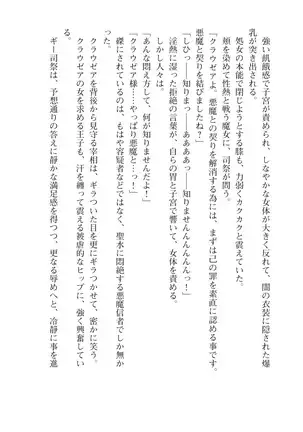 強い飢餓感で子宮が責められ、しなやかな女体が大きく反れて、闇の衣装に隠された爆
乳が突き出される。
処女の本能で閉じようとする膝も、力弱くカクカクと震えていた。
頬を染めて性熱と戦う魔女に、司祭が問う。
「クラウゼアよ。悪魔との契りを解消する為には、まずは己の罪を素直に認める事です。
悪魔と契りを結びましたね？」
「しひっ――知りまっ――ああああっ――知りませんんんんんんっ！」
淫熱に湿った拒絶の言葉が、自らの胃と子宮で響いて、女体を責める。
しかし人々は。
「あんな悶え方して、何が知りませんだよ！」
「クラウゼア様……やっぱり悪魔と…っ！」
磔にされているのは、もはや容疑者などではなく、聖水に悶絶する悪魔信者でしか無か
った。
クラウゼアを背後から見守る宰相は、ギラついた目を更にギラつかせて、密かに笑う。
クラウゼアの女を求める王子も、汗を纏って震える被虐的なヒップに、強く興奮してい
る。
ギー司祭は、予想通りの答えに静かな満足感を得つつ、更なる辱めへと、冷静に事を進